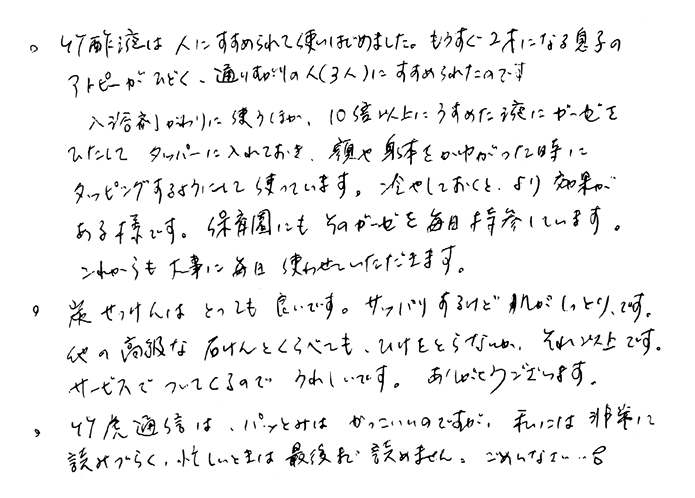 。竹酢液は人にすすめられて使いはじめました。もうすぐ2才になる息子の
アトピーがひどく、通りすがりの人(3人)にすすめられたのです
入浴剤がわりに使うほか、10倍以上にうすめた液にガーゼを
ひたして タッパーに入れておき、顔や身体をかゆがった時に
タッピングするようにして使っています。冷やしておくと、より効果が
ある様です。保育園にもそのガーゼを毎日持参しています。
これからも大事に毎日使わせていただきます。
。炭せっけんは とっても 良いです。サッパリするけど肌がしっとり、です。
他の高級な石けんとくらべても、ひけをとらないか、それ以上です。
サービスでついてくるので うれしいです。ありがとうございます。
。竹虎通信は、パッとみは かっこいいのですが、私には非常に
読みづらく、忙しいときは最後まで読めません。ごめんなさい…